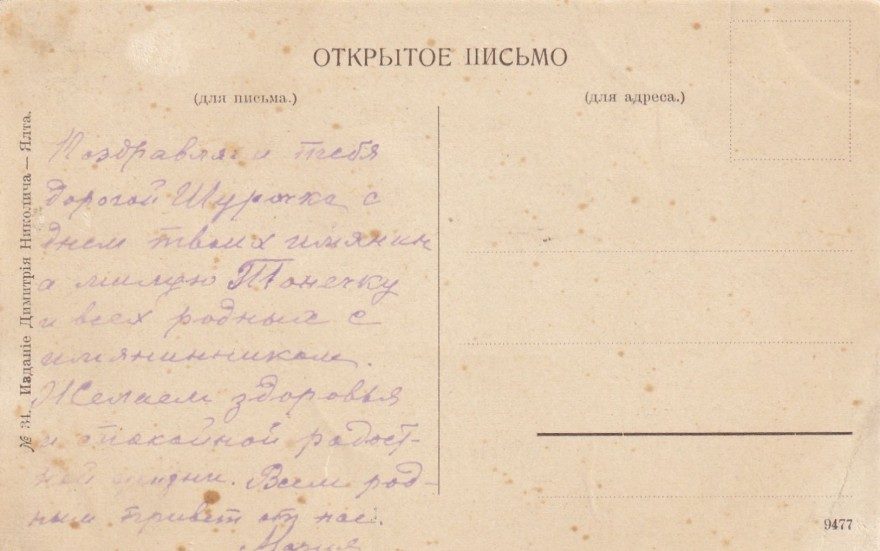 ОТКРЫТОЕ ПИСЬМО
(для письма.)
(для адреса.)
№ 34. Изданіе Димитрія Николича — Ялта.
Поздравляю тебя
дорогой Шурочка с
днем твоих имянин
а милую Тонечку
и всех родных с
имянинником.
Желаем здоровья
и спокойной радост-
ной жизни. Всем род-
ным привет от нас.
Мария
9477